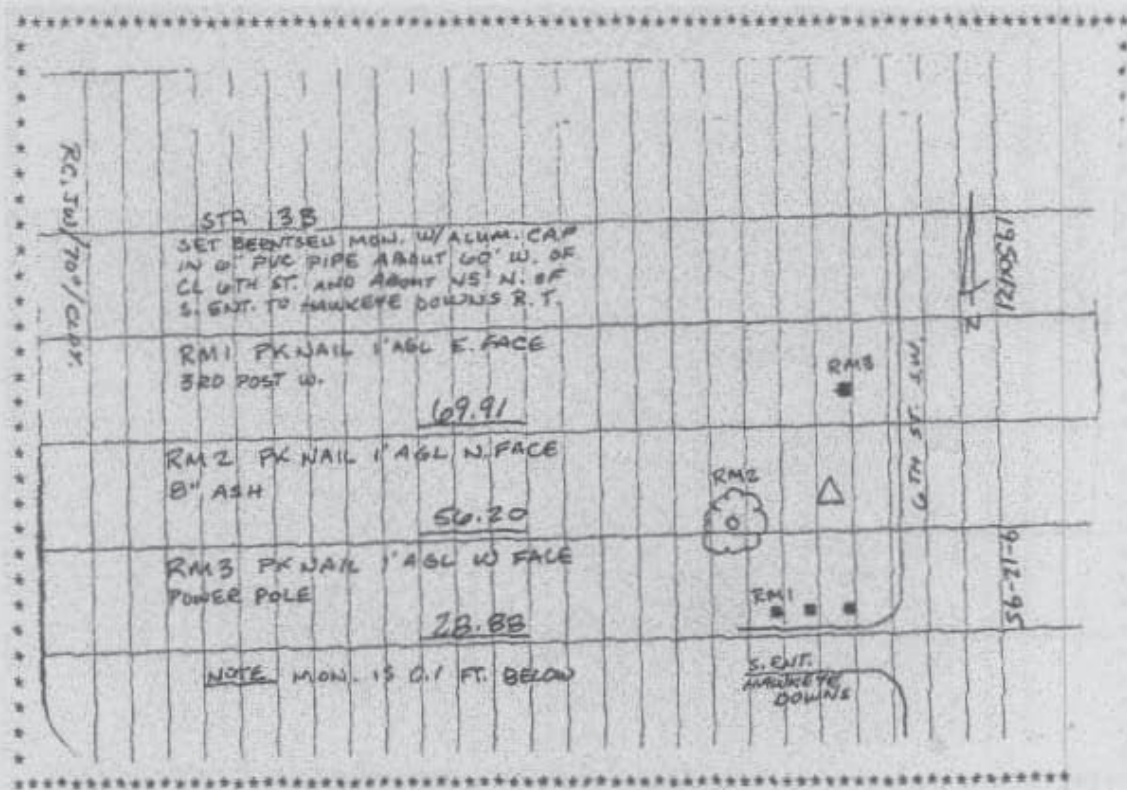 STA 13B
SET BERNTSEN MON. W/ ALUM. CAP
IN 6" PVC PIPE ABOUT 60' W. OF
CL 6TH ST. AND ABOUT 45' N. OF
S. ENT. TO HAWKEYE DOWNS R.T.
RM1 PK NAIL 1' AGL E. FACE
3RD POST W.
69.91
RM2 PK NAIL 1' AGL N. FACE
8" ASH
56.20
RM3 PK NAIL 1' AGL W FACE
POWER POLE
28.88
NOTE MON. IS 0.1 FT. BELOW
RM3
RM2
RM1
6TH ST. S.W.
S. ENT.
HAWKEYE
DOWNS
N
6-21-95